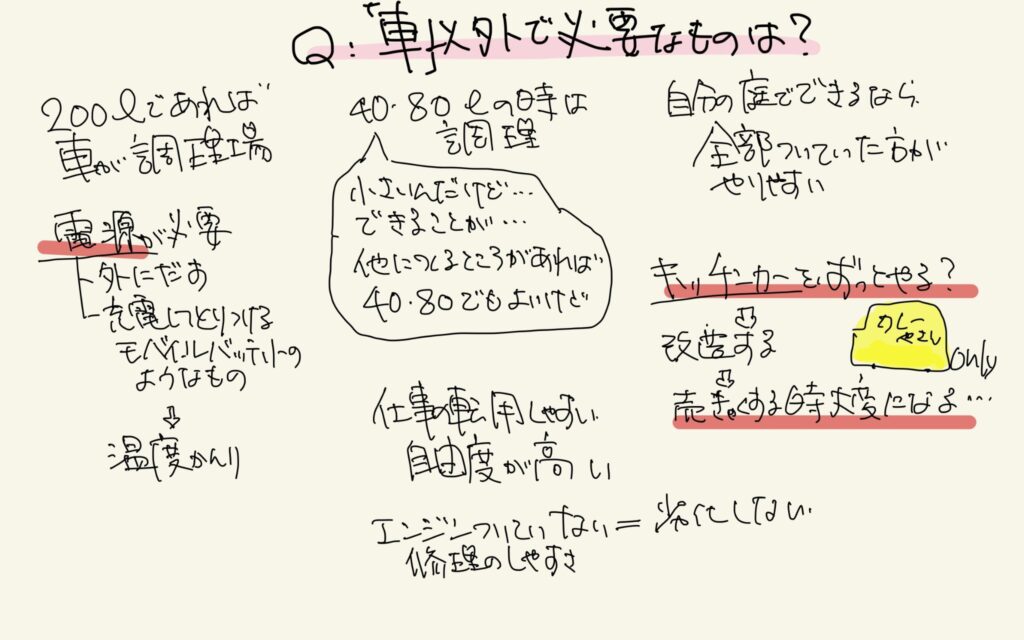 Q:「車」以外で必要なものは?
200ℓであれば
車が調理場
電源が必要
外にだす
充電してとりつける
モバイルバッテリーの
ようなもの
⇩
温度かんり
40・80ℓの時は
調理
小さいんだけど…
できることが…
他につくるところがあれば
40・80でもよいけど
仕事の転用しやすい
自由度が高い
エンジンついていない=劣化しない
修理のしやすさ
自分の庭でできるなら
全部ついていた方が
やりやすい
キッチンカーをずっとやる?
⇩
改造する
カレー
only
⇩
売きゃくする時大変になる…